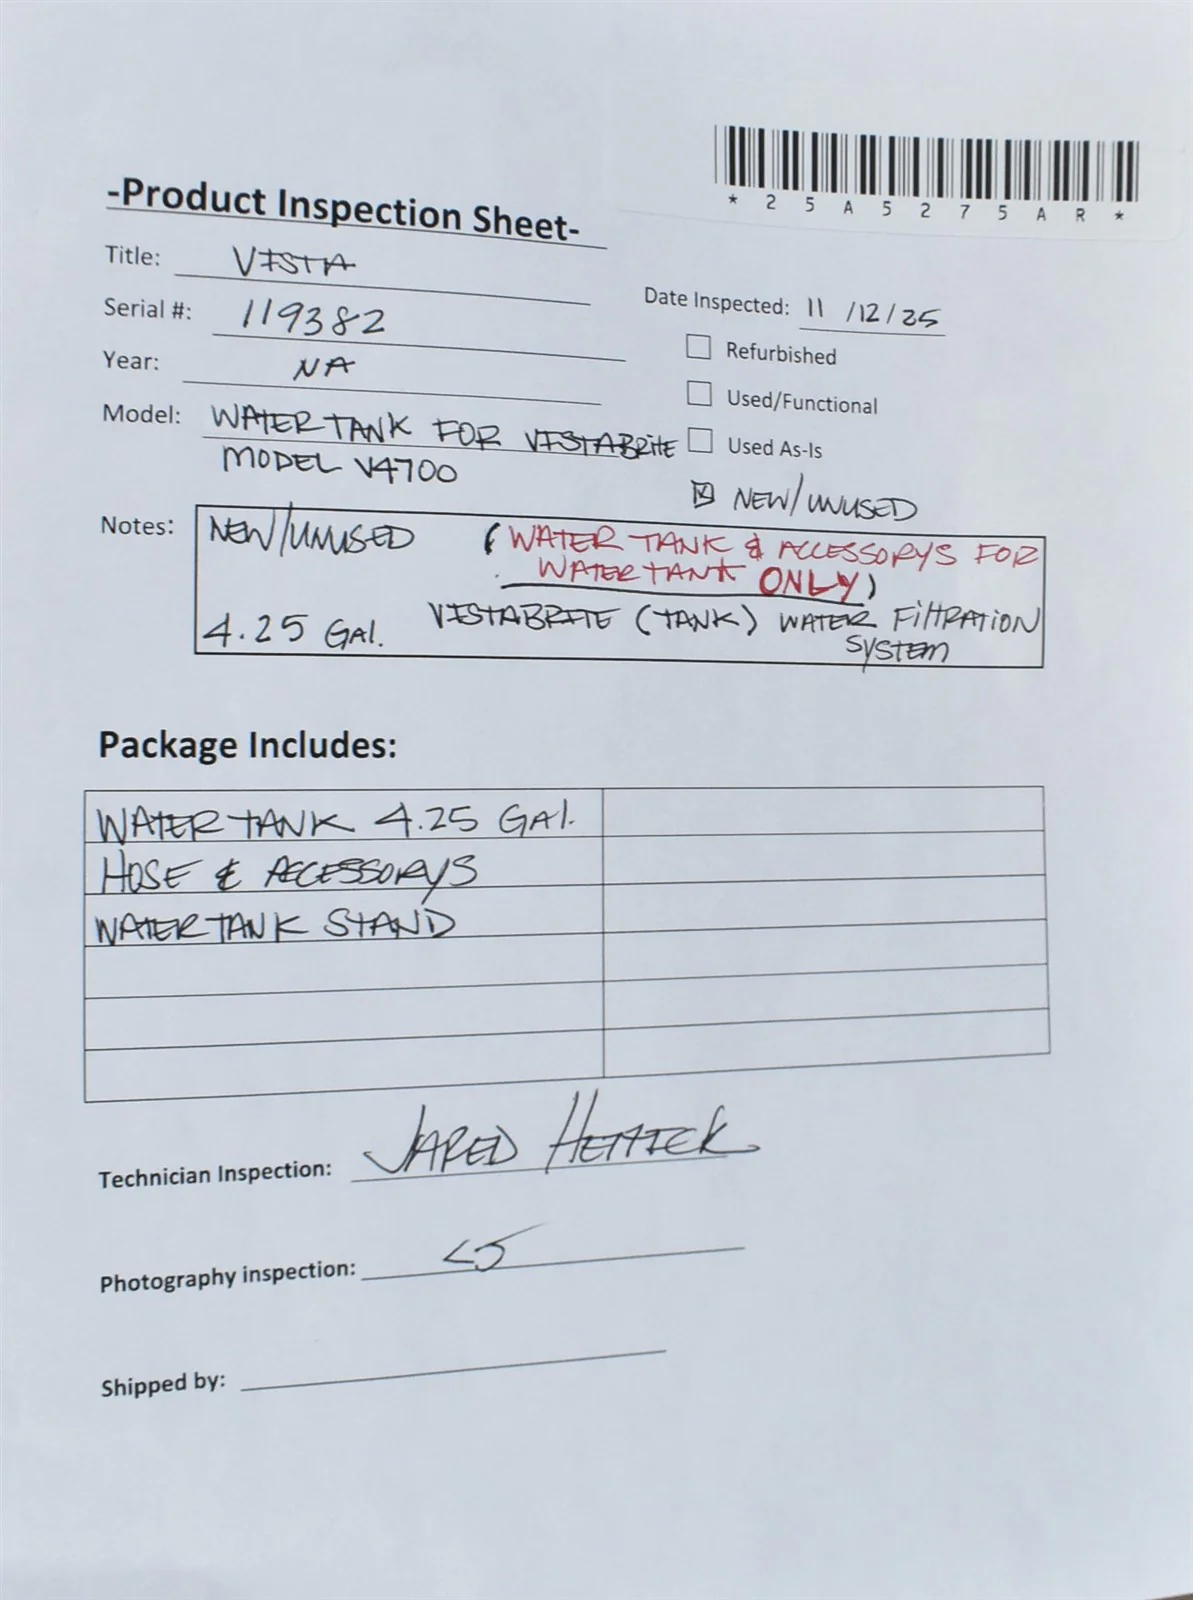 *25A5275AR*
-Product Inspection Sheet-
Title: VISTA
Date Inspected: 11/12/25
Serial #: 119382
Refurbished
Year: NA
Used/Functional
Model: WATER TANK FOR VISTABRITE
MODEL V4700
Used As-Is
NEW/UNUSED
Notes: NEW/UNUSED (WATER TANK & ACCESSORYS FOR
WATER TANK ONLY)
4.25 GAL. VISTABRITE (TANK) WATER FILTRATION
SYSTEM
Package Includes:
WATER TANK 4.25 GAL.
HOSE & ACCESSORYS
WATER TANK STAND
Technician Inspection: JARED
Photography inspection:
Shipped by: